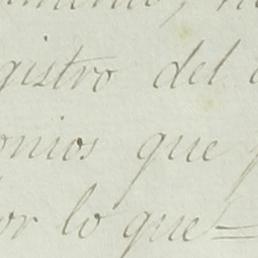 gistro del
onios que
or lo que